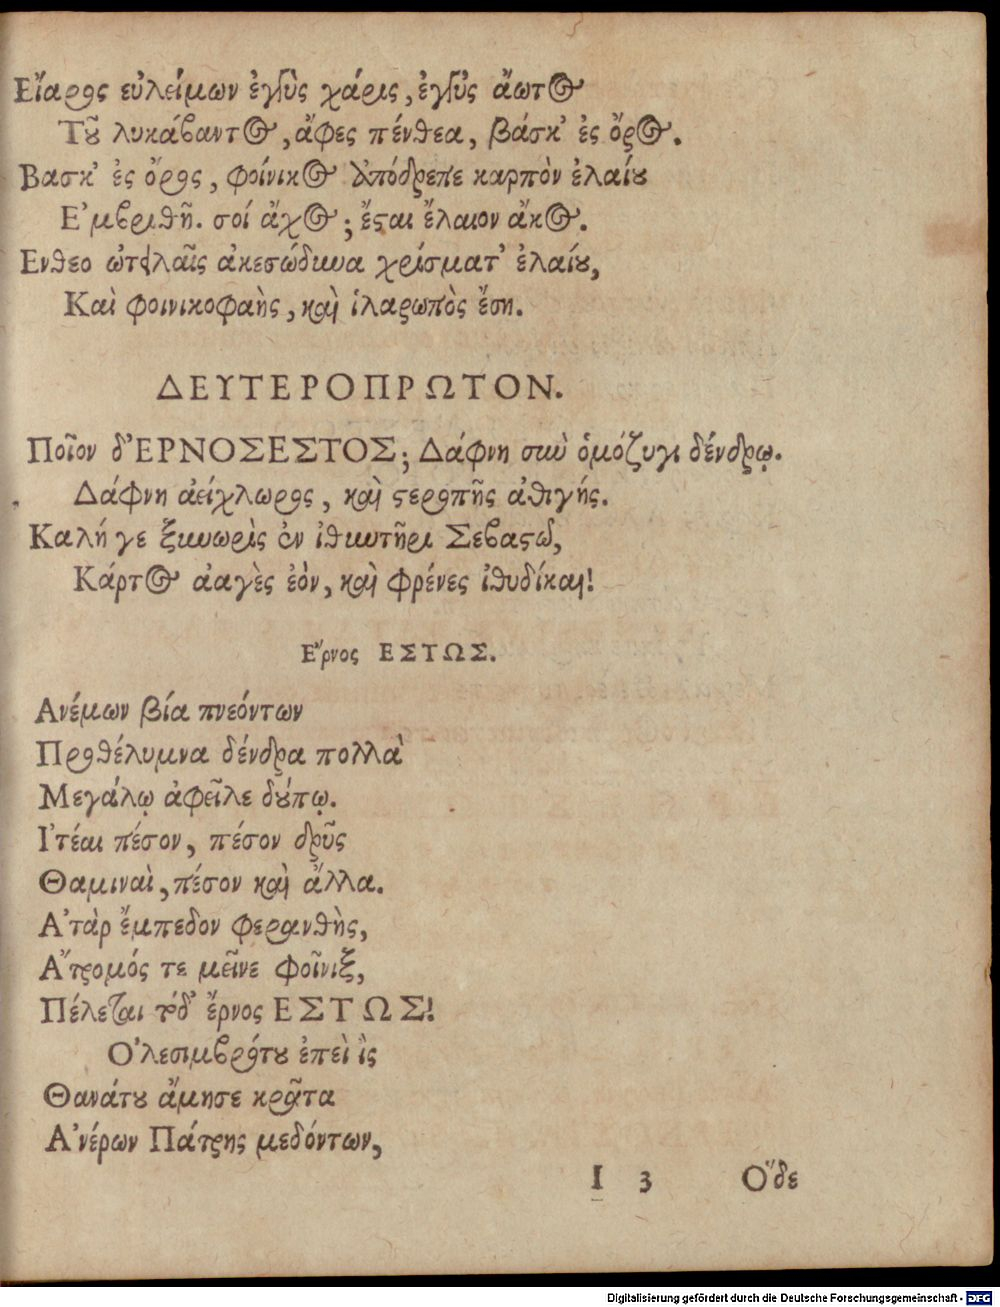 Εἴαρος εὐλείμων ἐγγὺς χάρις, ἐγγὺς ἄωτος
Τοῦ λυκάβαντος, ἄφες πένθεα, βάσκ' ἐς ὄρος.
Βασκ' ἐς ὄρος, φοίνικος ἀπόδρεπε καρπὸν ἐλαίου
Ε'μβριθῆ. σοί ἄχος; ἔσται ἔλαιον ἄκος.
Ενθεο ὠτειλαῖς ἀκεσώδυνα χρίσματ' ἐλαίου,
Καὶ φοινικοφαὴς, καὶ ἱλαρωπὸς ἔση.
ΔΕΥΤΕΡΟΠΡΩΤΟΝ.
Ποῖον δ'ΕΡΝΟΣΕΣΤΟΣ; Δάφνη σὺν ὁμόζυγι δένδρῳ.
Δάφνη ἀείχλωρος, καὶ στεροπῆς ἀθιγής.
Καλή γε ξυνωρὶς ἐν ἰθυντῆρι Σεβαστῷ,
Κάρτος ἀαγὲς ἐὸν, καὶ φρένες ἰθυδίκαι!
Ε῎ρνος ΕΣΤΩΣ.
Ανέμων βία πνεόντων
Προθέλυμνα δένδρα πολλὰ
Μεγάλῳ ἀφεῖλε δούπῳ.
Ι'τέαι πέσον, πέσον δρῦς
Θαμιναὶ, πέσον καὶ ἄλλα.
Α'τὰρ ἔμπεδον φερανθὴς,
Α῎τρομός τε μεῖνε φοῖνιξ,
Πέλεται τόδ' ἔρνος ΕΣΤΩΣ!
Ο'λεσιμβρότου ἐπεὶ ἲς
Θανάτου ἄμησε κρᾶτα
Α'νέρων Πάτρης μεδόντων,
I 3 Ο῞δε
Digitalisierung gefördert durch die Deutsche Forschungsgemeinschaft - DFG